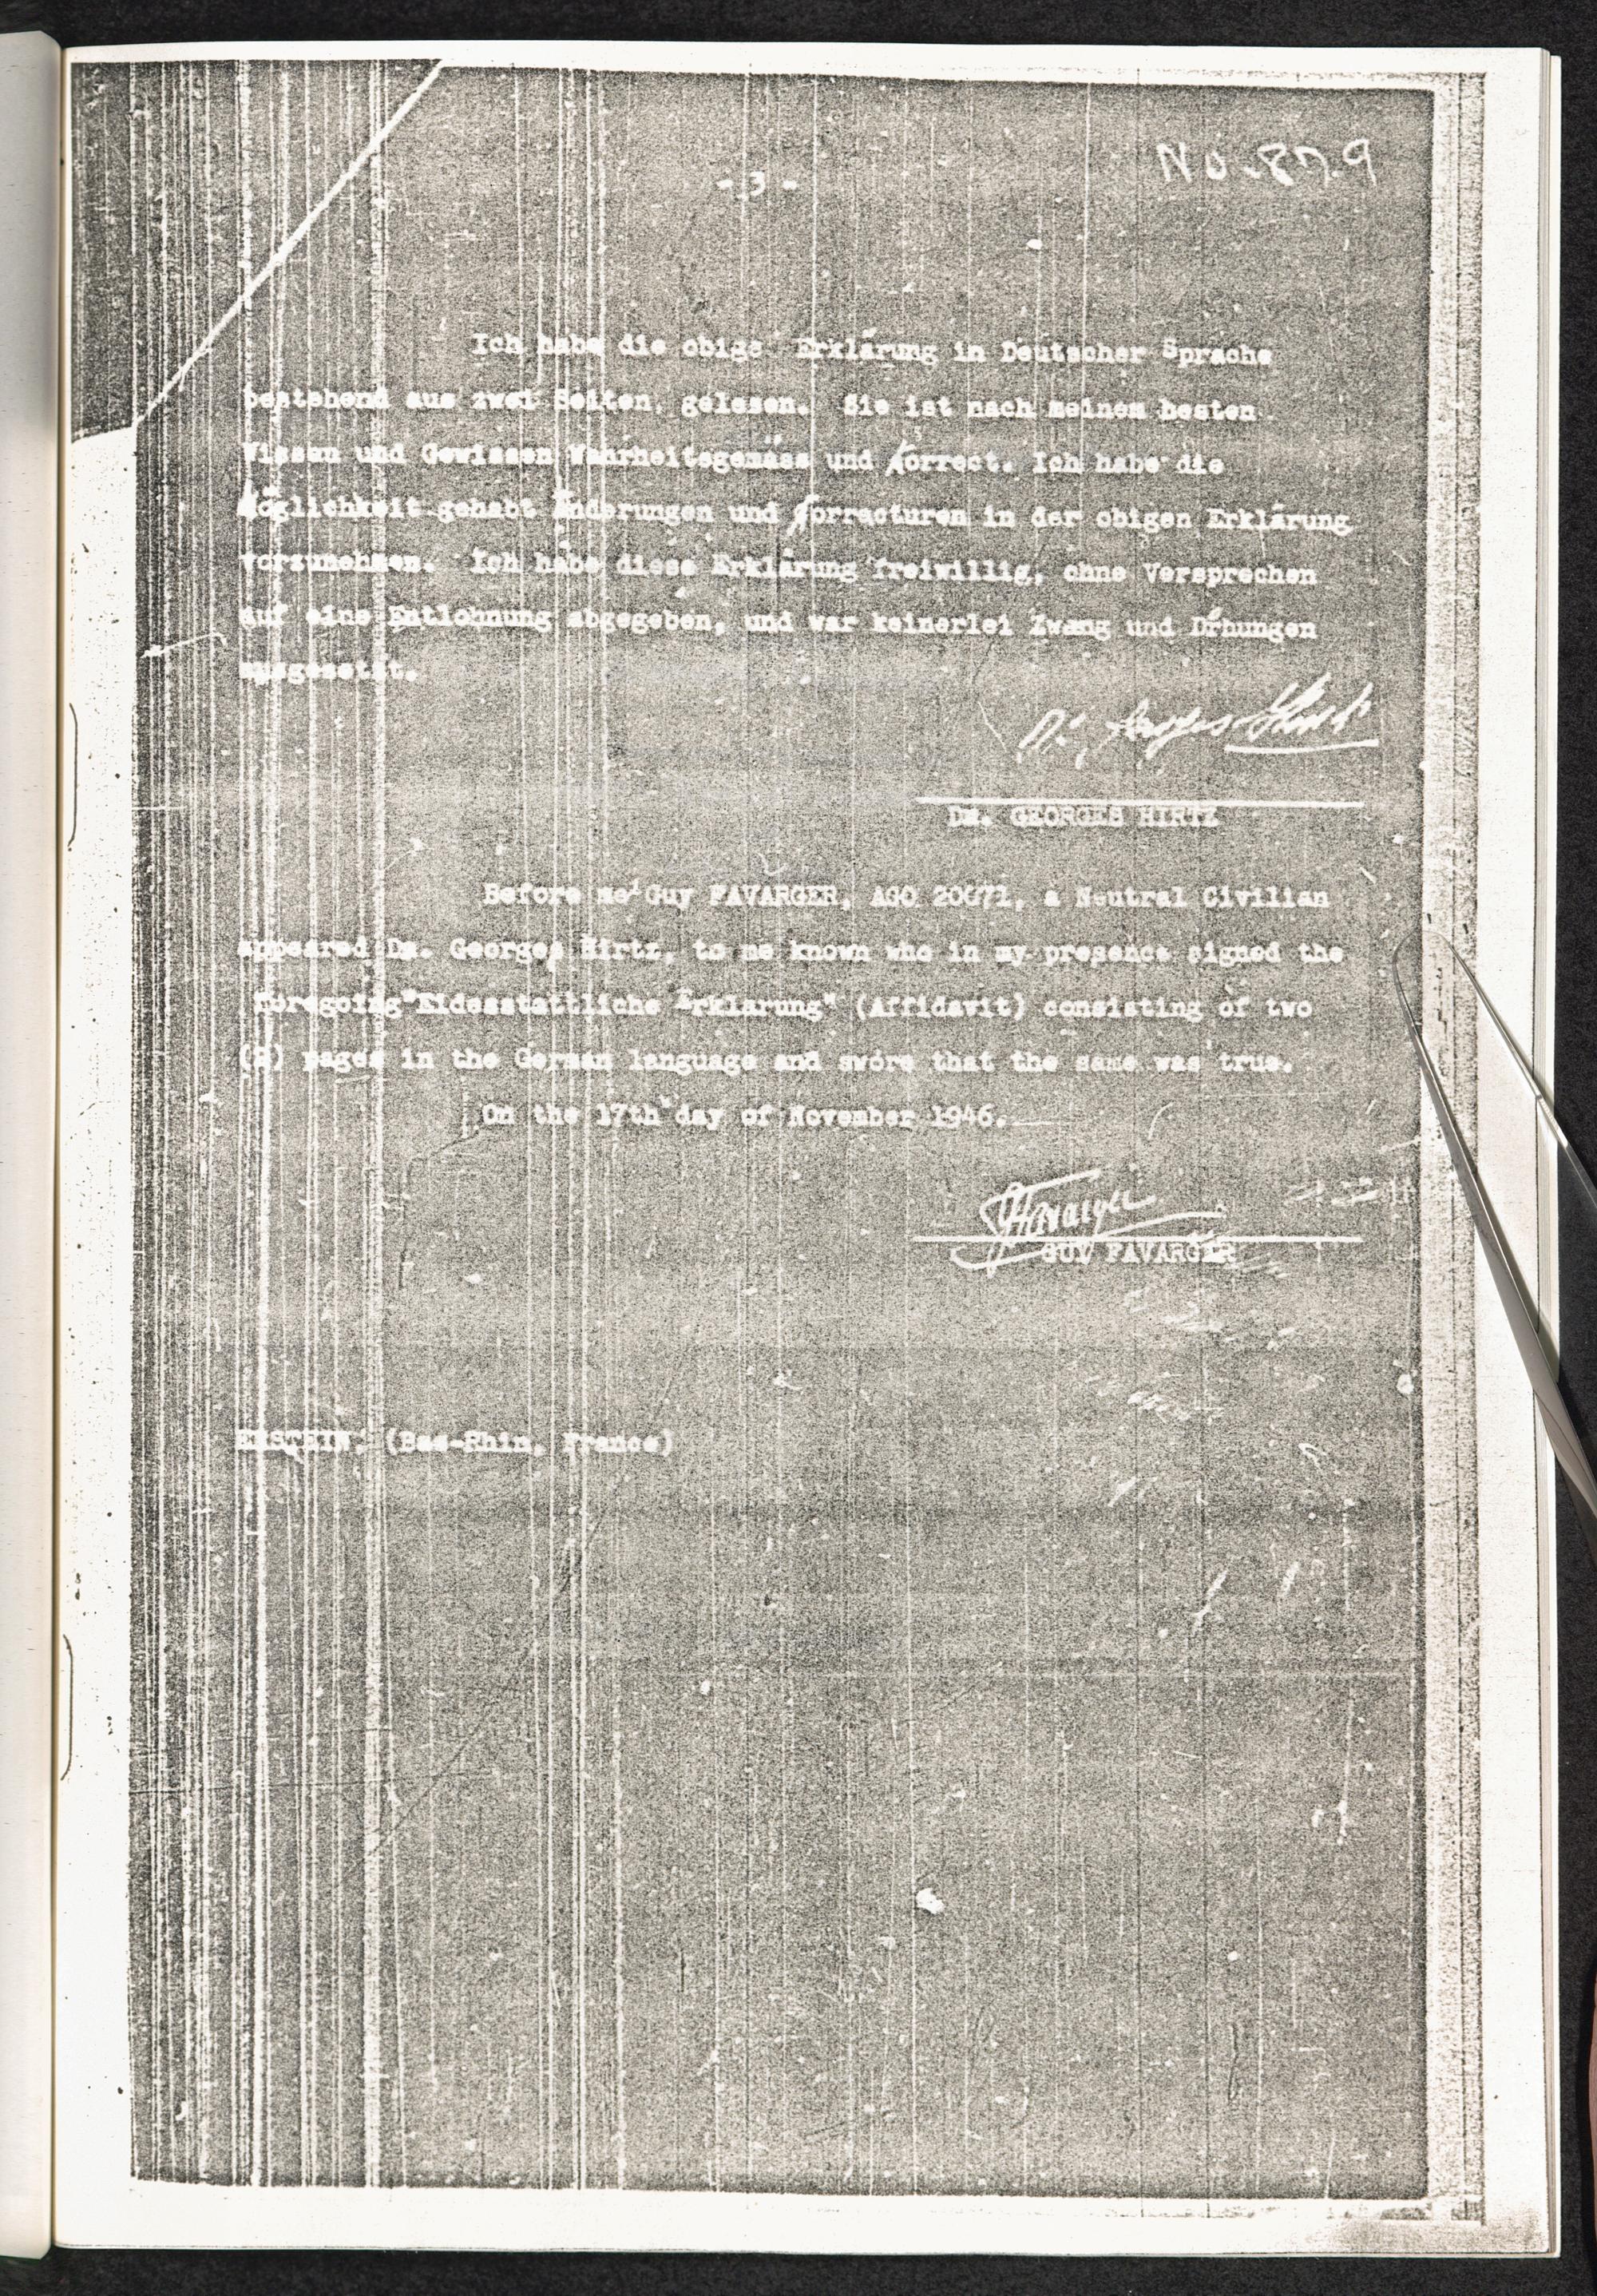 - 3 -
NO-879
Ich habe die obige Erklärung in Deutscher Sprache
bestehend aus zwei Seiten, gelesen. Sie ist nach meinem besten
Wissen und Gewissen Wahrheitsgemäss und Korrect. Ich habe die
Möglichkeit gehabt Änderungen und Korrecturen in der obigen Erklärung
vorzunehmen. Ich habe diese Erklärung freiwillig, ohne Versprechen
auf eine Entlohnung abgegeben, und war keinerlei Zwang und Drhungen
ausgesetzt.
Dr. Georges Hirtz
DR. GEORGES HIRTZ
Before me Guy FAVARGER, AGO 20671, a Neutral Civilian
appeared Dr. Georges Hirtz, to me known who in my presence signed the
foregoing "Eidesstattliche Erklarung" (Affidavit) consisting of two
(2) pages in the German language and swore that the same was true.
On the 17th day of November 1946.
GFavarger
GUY FAVARGER
ERSTEIN, (Bas-Rhin, France)